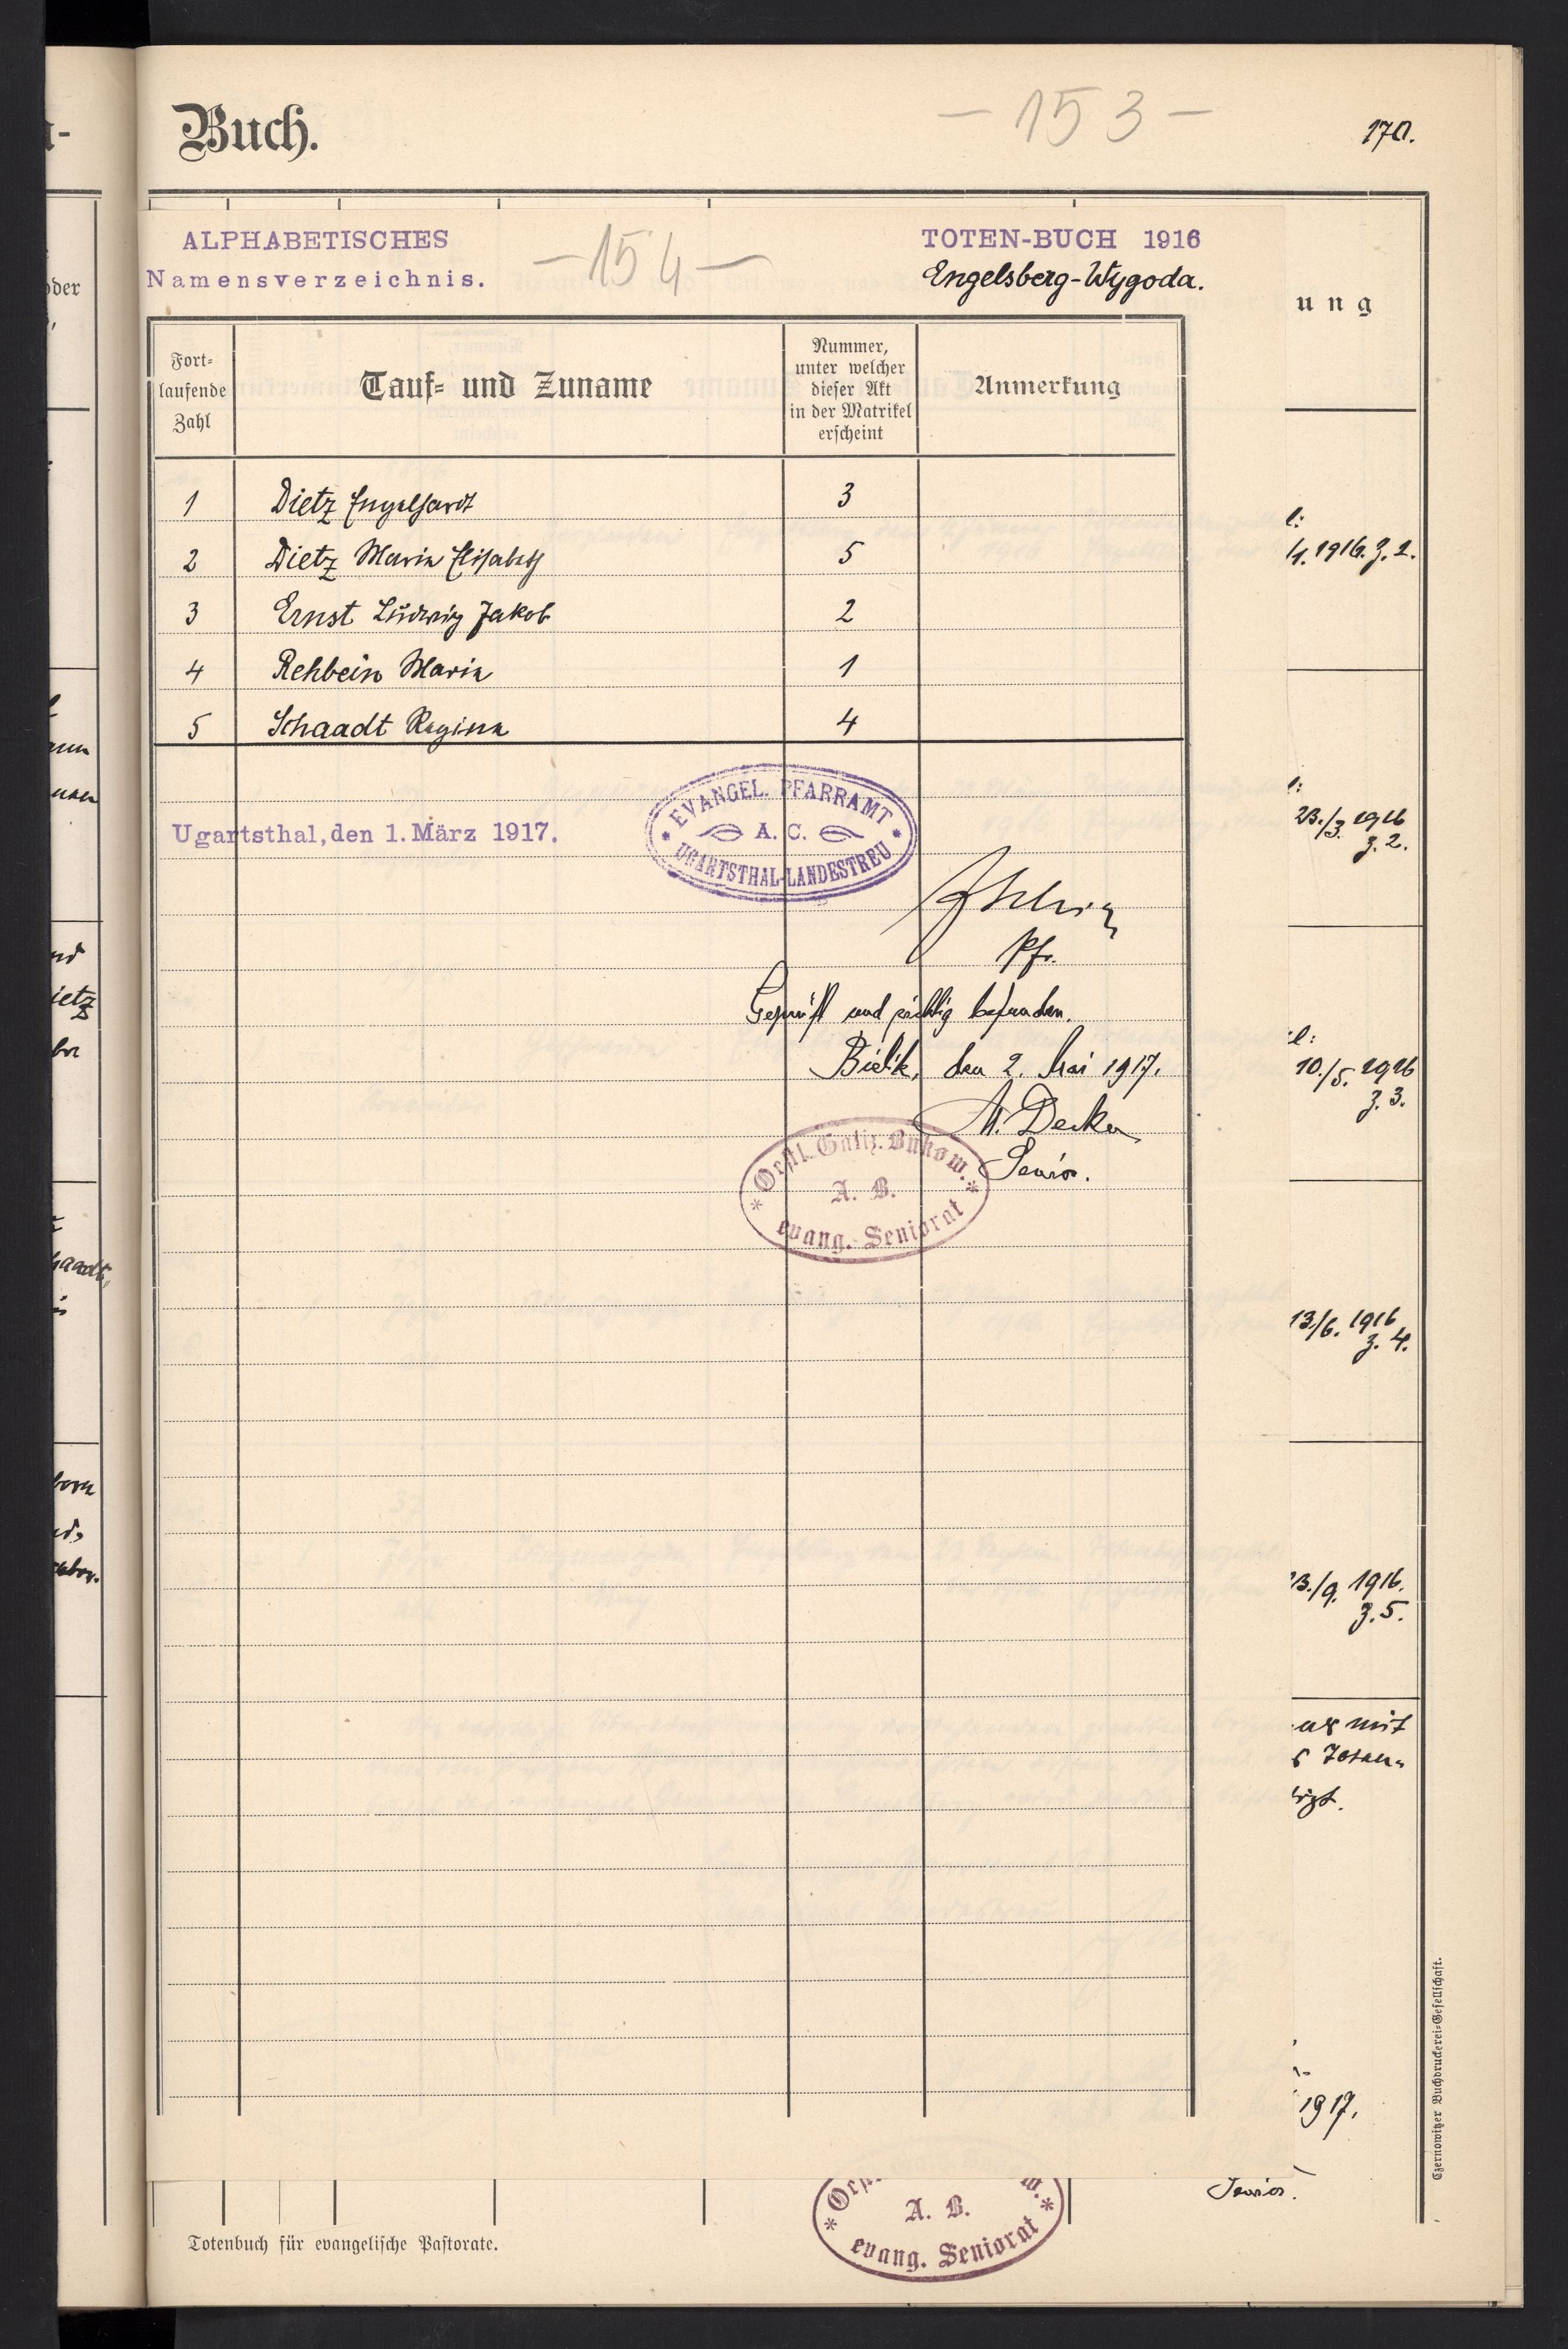 Buch.
— 153 —
170.
ALPHABETISCHES
Namensverzeichnis.
— 154 —
TOTEN-BUCH 1916
Engelsberg-Wygoda.
Fort-
laufende
Zahl
Tauf- und Zuname
Nummer,
unter welcher
dieser Akt
in der Matrikel
erscheint
Anmerkung
1 Dietz Engelhardt 3
2 Dietz Maria Elisabeth 5
3 Ernst Ludwig Jakob 2
4 Rehbein Maria 1
5 Schaadt Regina 4
Ugartsthal, den 1. März 1917.
* EVANGEL. PFARRAMT *
A. C.
UGARTSTHAL-LANDESTREU
Pfr.
Geprüft und richtig befunden.
Bielik, den 2. Mai 1917.
M. Decker
Senior.
* Oestl. Galiz. Bukow. *
A. B.
evang. Seniorat
ung
l:
/1. 1916. Z. 1.
l:
23./3. 1916
Z. 2.
el:
10./5. 1916
Z. 3.
13./6. 1916
Z. 4.
3./9. 1916.
Z. 5.
mit
Toten-
1917.
Senior.
w. *
* Oest
A. B.
evang. Seniorat
oder
ietz
haadt,
Totenbuch für evangelische Pastorate.
Czernowitzer Buchdruckerei-Gesellschaft.